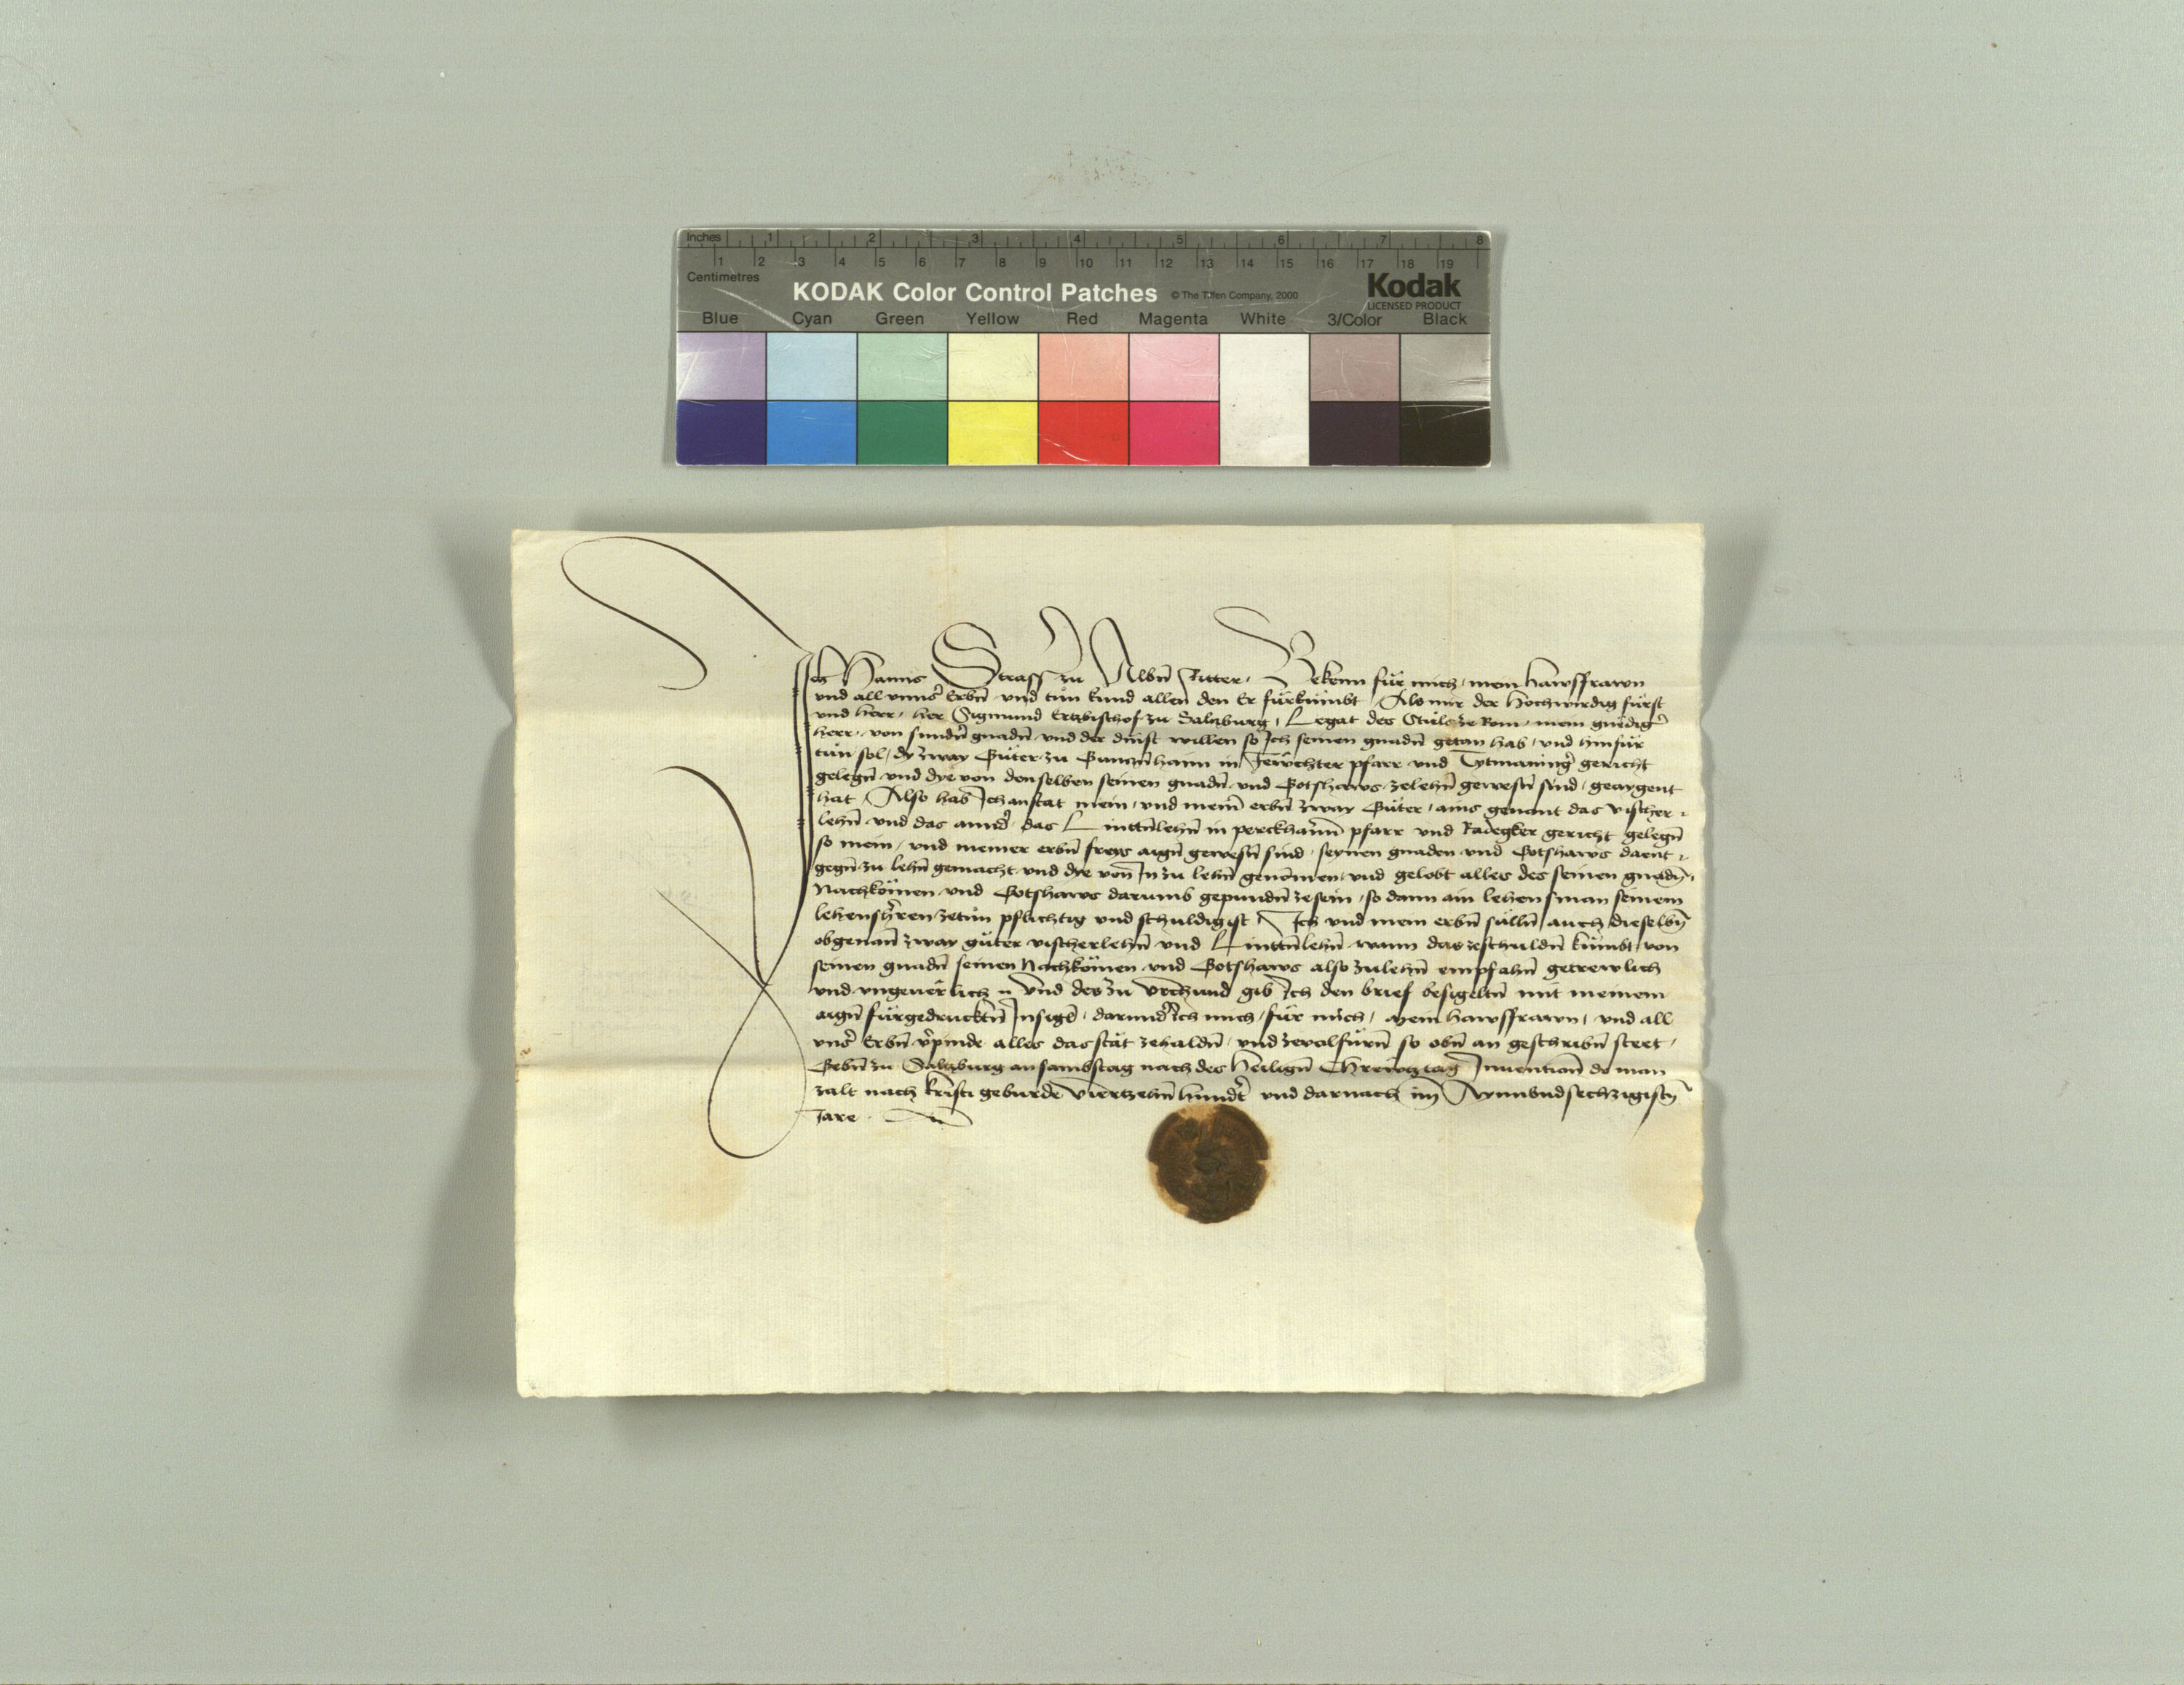 Inches 1 2 3 4 5 6 7 8
1 2 3 4 5 6 7 8 9 10 11 12 13 14 15 16 17 18 19
Centimetres
KODAK Color Control Patches © The Tiffen Company, 2000 Kodak
LICENSED PRODUCT
Blue Cyan Green Yellow Red Magenta White 3/Color Black
Ich Hanns Strass zu Albñ Ritter, Bekenn für mich, mein hawsfrawn
und all unnsr̃ Erbñ und tůn kund allen den Er fürkümbt, Als mir der hochwirdig fürst
und herr, her Sigmund Ertzbischof zu Saltzburg, Legat des Stůls ze Rom, mein gnedigr̃
herr, von sundr̃n gnadñ und der dinst willen so Ich seinen gnadñ getan hab, und hinfür
tůn sol, dy zway Gůter zu in pfarr und Tytmaningr̃ gericht
gelegñ und dye von denselben seinen gnadñ und Gotshaws zelehñ gewestñ sind, geaygent
hat, Also hab Ich anstat mein, und meinr̃ erbñ zway Gůter, ains genant das vischer-
lehñ und das annd̃ das Linttñlehñ in perckhaimr̃ pfarr und Radegker gericht gelegñ
so mein, und meiner erbñ freys aigñ gewestñ sind, seynen gnaden und Gotshaws darent-
gegñ zu lehñ gemacht und dye von In zu lehñ genomen, und gelobt alles des seinen gnadñ,
Nachkomen und Gotshaws darumb gepundñ zesein, so dann ain lehensman seinem
lehenshr̃ren zetůn pflichtig und schuldig ist Ich und mein erbñ süllñ auch dieselbñ
obgenañ zway gůter vischerlehñ und Linttñlehñ wann das zeschuldñ kümbt von
seinen gnadñ seinen Nachkomen und Gotshaws also zulehñ empfahñ getrewlich
und ungeuerlich Und des zu Urchund gib Ich den brief besigeltñ mit meinem
aigñ fürgedrucktñ Insigl̃, darundr̃ Ich mich, für mich, mein hawsfrawn, und all
unsr̃ Erbñ vr̃pinde alles das stät zehaldñ, und zevolfürñ so obñ an geschribñ steet,
Gebñ zu Saltzburg an sambstag nach des heiligñ Chrewtztag Inventionĩ do man
zalt nach kristi geburde viertzehñhundr̃t und darnach im Aynundsechzigistñ
Jare